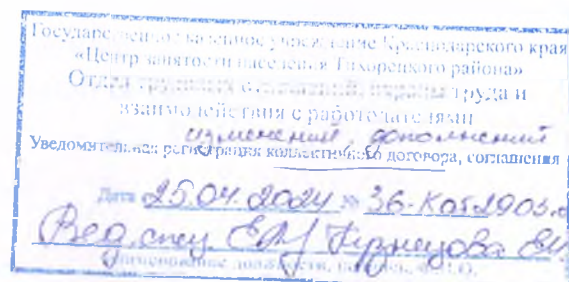 Государственное казенное учреждение Краснодарского края
«Центр занятости населения Тихорецкого района»
Отдел трудовых отношений, охраны труда и
взаимодействия с работодателями
изменений, дополнений
Уведомительная регистрация коллективного договора, соглашения
Дата 25.04.2024 № 36-
Вед. спец. Кузнецова ЕИ.
наименование должности, подпись, Ф.И.О.